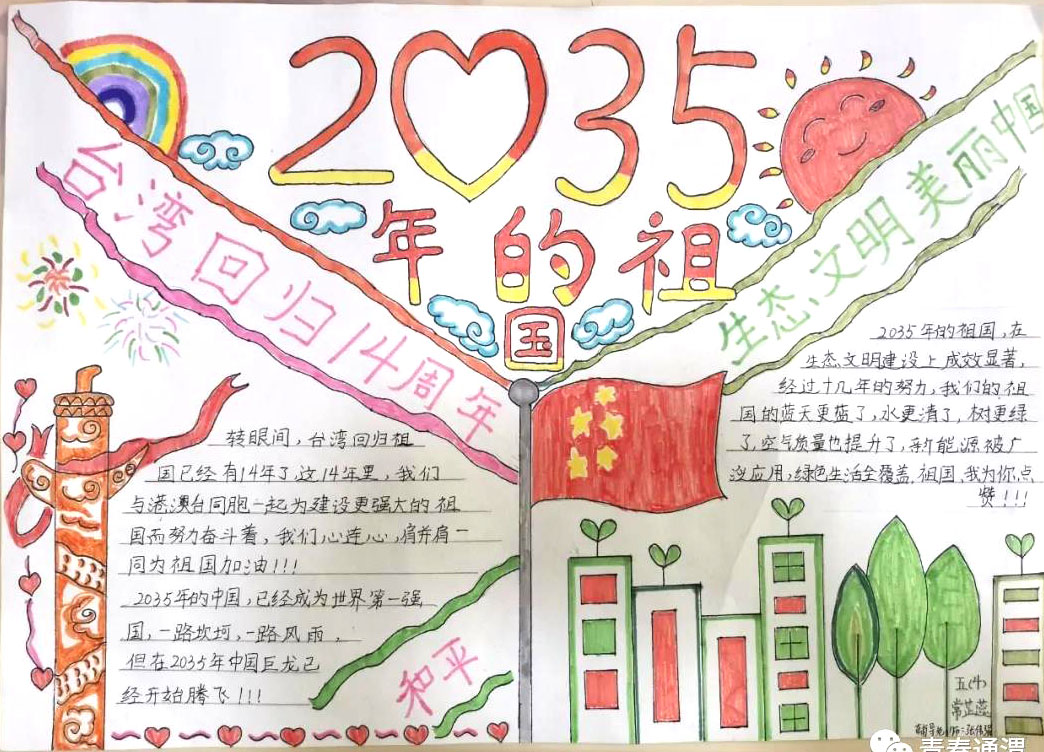 2035
年的祖
国
台湾回归14周年
生态文明美丽中国
转眼间，台湾回归祖
国已经有14年了，这14年里，我们
与港澳台同胞一起为建设更强大的祖
国而努力奋斗着，我们心连心，肩并肩一
同为祖国加油！！！
2035年的中国，已经成为世界第一强
国，一路坎坷，一路风雨，
但在2035年中国巨龙已
经开始腾飞！！！
和平
2035年的祖国，在
生态文明建设上成效显著，
经过十几年的努力，我们的祖
国的蓝天更蓝了，水更清了，树更绿
了，空气质量也提升了，新能源被广
泛应用，绿色生活全覆盖，祖国、我为你点
赞！！！
五(4)
常芷蕊
青春通渭